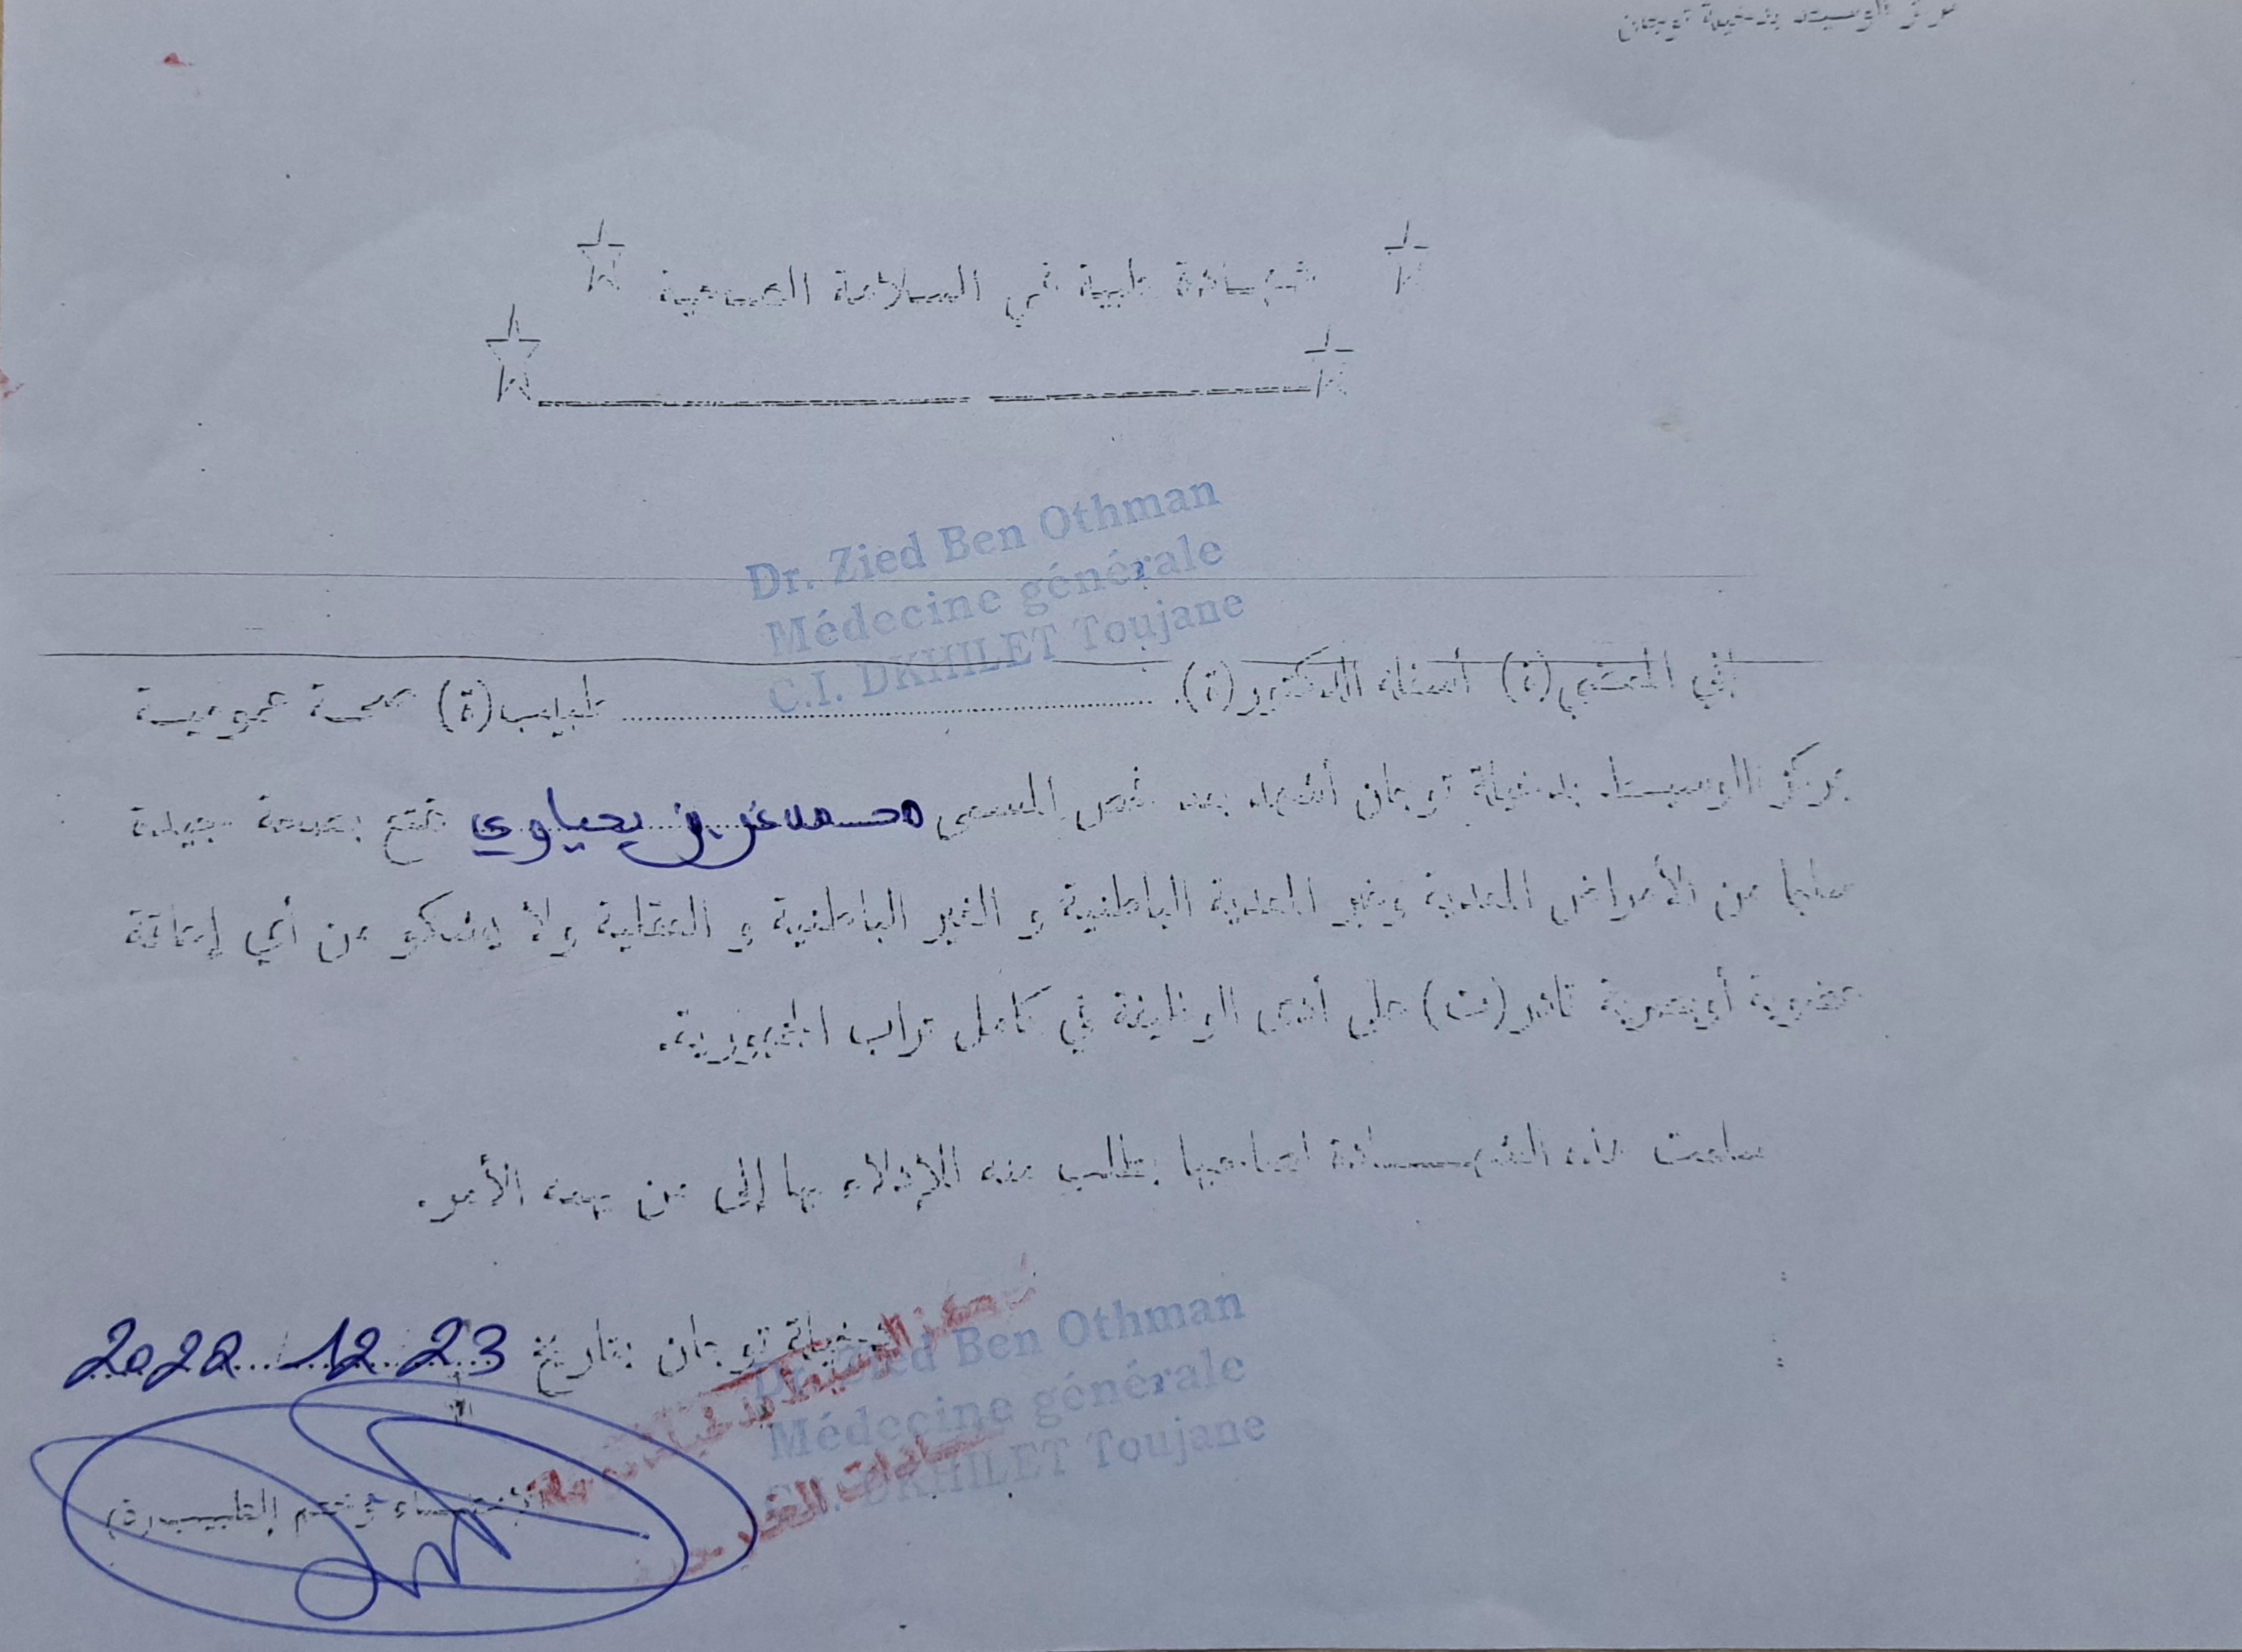 مركز الوسيط بدخيلة توجان
شهادة طبية في السلامة الصحية
Dr. Zied Ben Othman
Médecine générale
C.I. DKHILET Toujane
إني الممضي(ة) أسفله الدكتور(ة). طبيب(ة) صحة عمومية
بمركز الوسيط بدخيلة توجان أشهد بعد فحص المسمى محمد عزيز يحياوي تمتع بصحة جيدة
سليما من الأمراض المعدية وغير المعدية الباطنية و الغير الباطنية و العقلية ولا يشكو من أي إعاقة
عضوية أوبصرية قادر(ت) على أدى الوظيفة في كامل تراب الجمهورية.
سلمت هذه الشهادة لصاحبها بطلب منه للإدلاء بها إلى من يهمه الأمر.
دخيلة توجان بتاريخ 23 12 2022
Dr. Zied Ben Othman
Médecine générale
C.I. DKHILET Toujane
الإمضاء وختم الطبيب(ة)